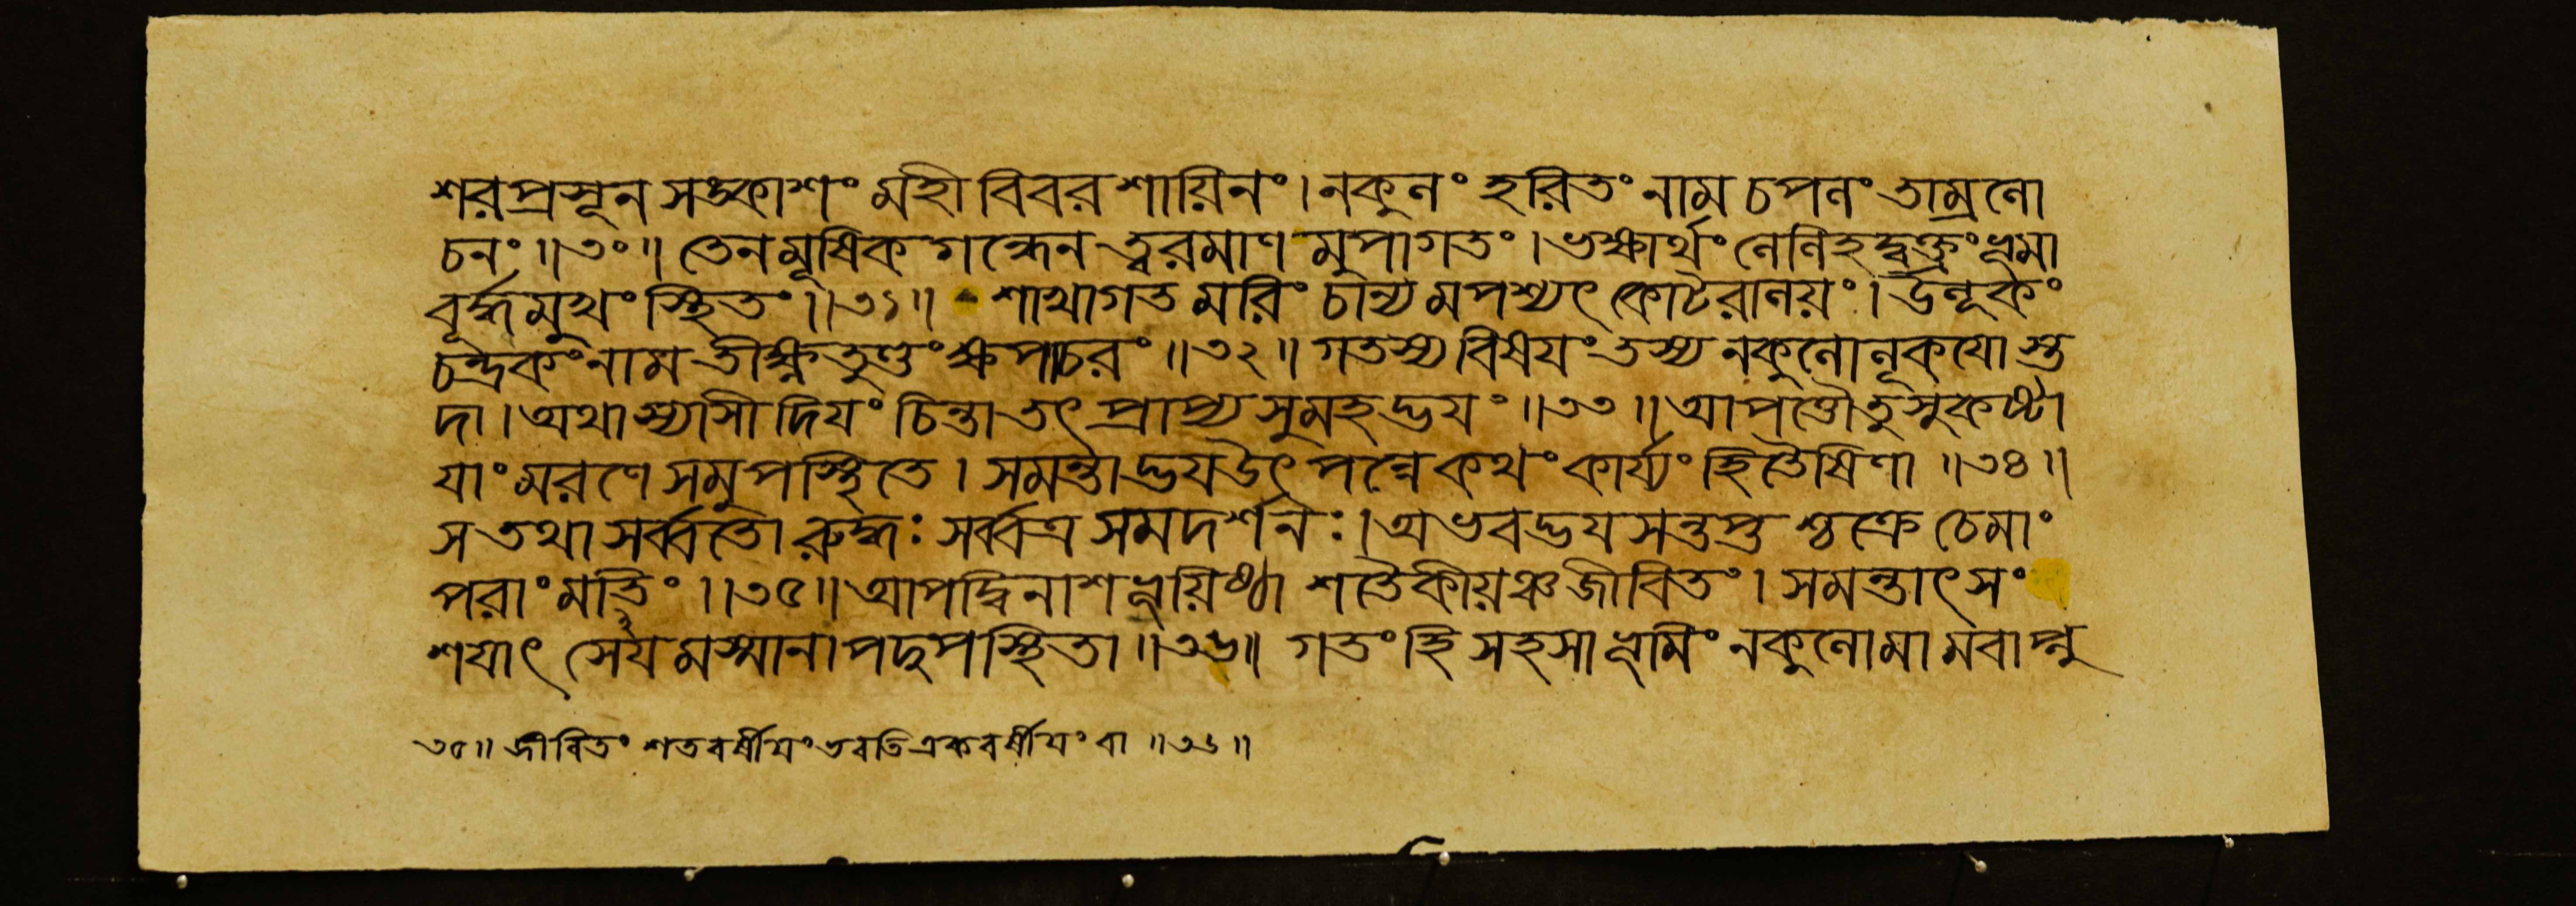 শরপ্রসূন সঙ্কাশং মহীবিবরশায়িনং। নকুলং হরিতং নাম চপলং তাম্রলো
চনং॥৩০॥ তেন মূষিক গন্ধেন ত্বরমাণ মুপাগতং। ভক্ষ্যার্থং লেলিহদ্বক্ত্রং ভূমা
বূর্দ্ধমুখং স্থিতং॥৩১॥ শাখাগত মরিং চান্য মপশ্যৎ কোটরালয়ং। উলূকং
চন্দ্রকং নাম তীক্ষ্ণতুণ্ডং ক্ষপাচরং॥৩২॥ গতস্য বিষয়ং তস্য নকুলোলূকয়োস্ত
দা। অথাস্যাসীদিয়ং চিন্তা তৎ প্রাপ্য সুমহদ্ভয়ং॥৩৩॥ আপত্তৌতু সুকষ্টা
য়াং মরণে সমুপস্থিতে। সমন্তাদ্ভয়উৎপন্নে কথং কার্য্যং হিতৈষিণা॥৩৪॥
স তথা সর্ব্বতো রুদ্ধঃ সর্ব্বত্র সমদর্শনঃ। অভবদ্ভয়সন্তপ্ত শ্চক্রে চেমাং
পরাং মতিং॥৩৫॥ আপদ্বিনাশভূয়িষ্ঠা শতৈকীয়ঞ্চ জীবিতং। সমন্তাৎ সং
শয়াৎ সেয়মস্মানাপদুপস্থিতা॥৩৬॥ গতং হি সহসা ভূমিং নকুলো মামবাপ্নু
৩৫॥ জীবিতং শতবর্ষীয়ং ভবতি একবর্ষীয়ং বা॥৩৬॥